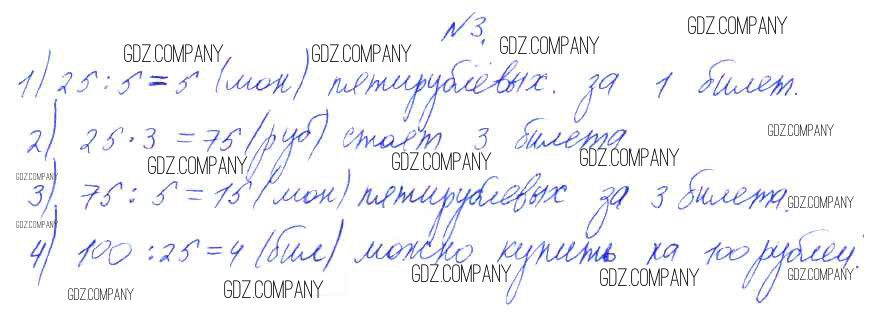 №3.
1) 25 : 5 = 5 (мон) пятирублёвых. за 1 билет.
2) 25 · 3 = 75 (руб) стоят 3 билета
3) 75 : 5 = 15 (мон) пятирублевых за 3 билета.
4) 100 : 25 = 4 (бил) можно купить на 100 рублей.
GDZ.COMPANY GDZ.COMPANY GDZ.COMPANY GDZ.COMPANY
GDZ.COMPANY
GDZ.COMPANY GDZ.COMPANY GDZ.COMPANY
GDZ.COMPANY GDZ.COMPANY
GDZ.COMPANY
GDZ.COMPANY GDZ.COMPANY GDZ.COMPANY GDZ.COMPANY GDZ.COMPANY